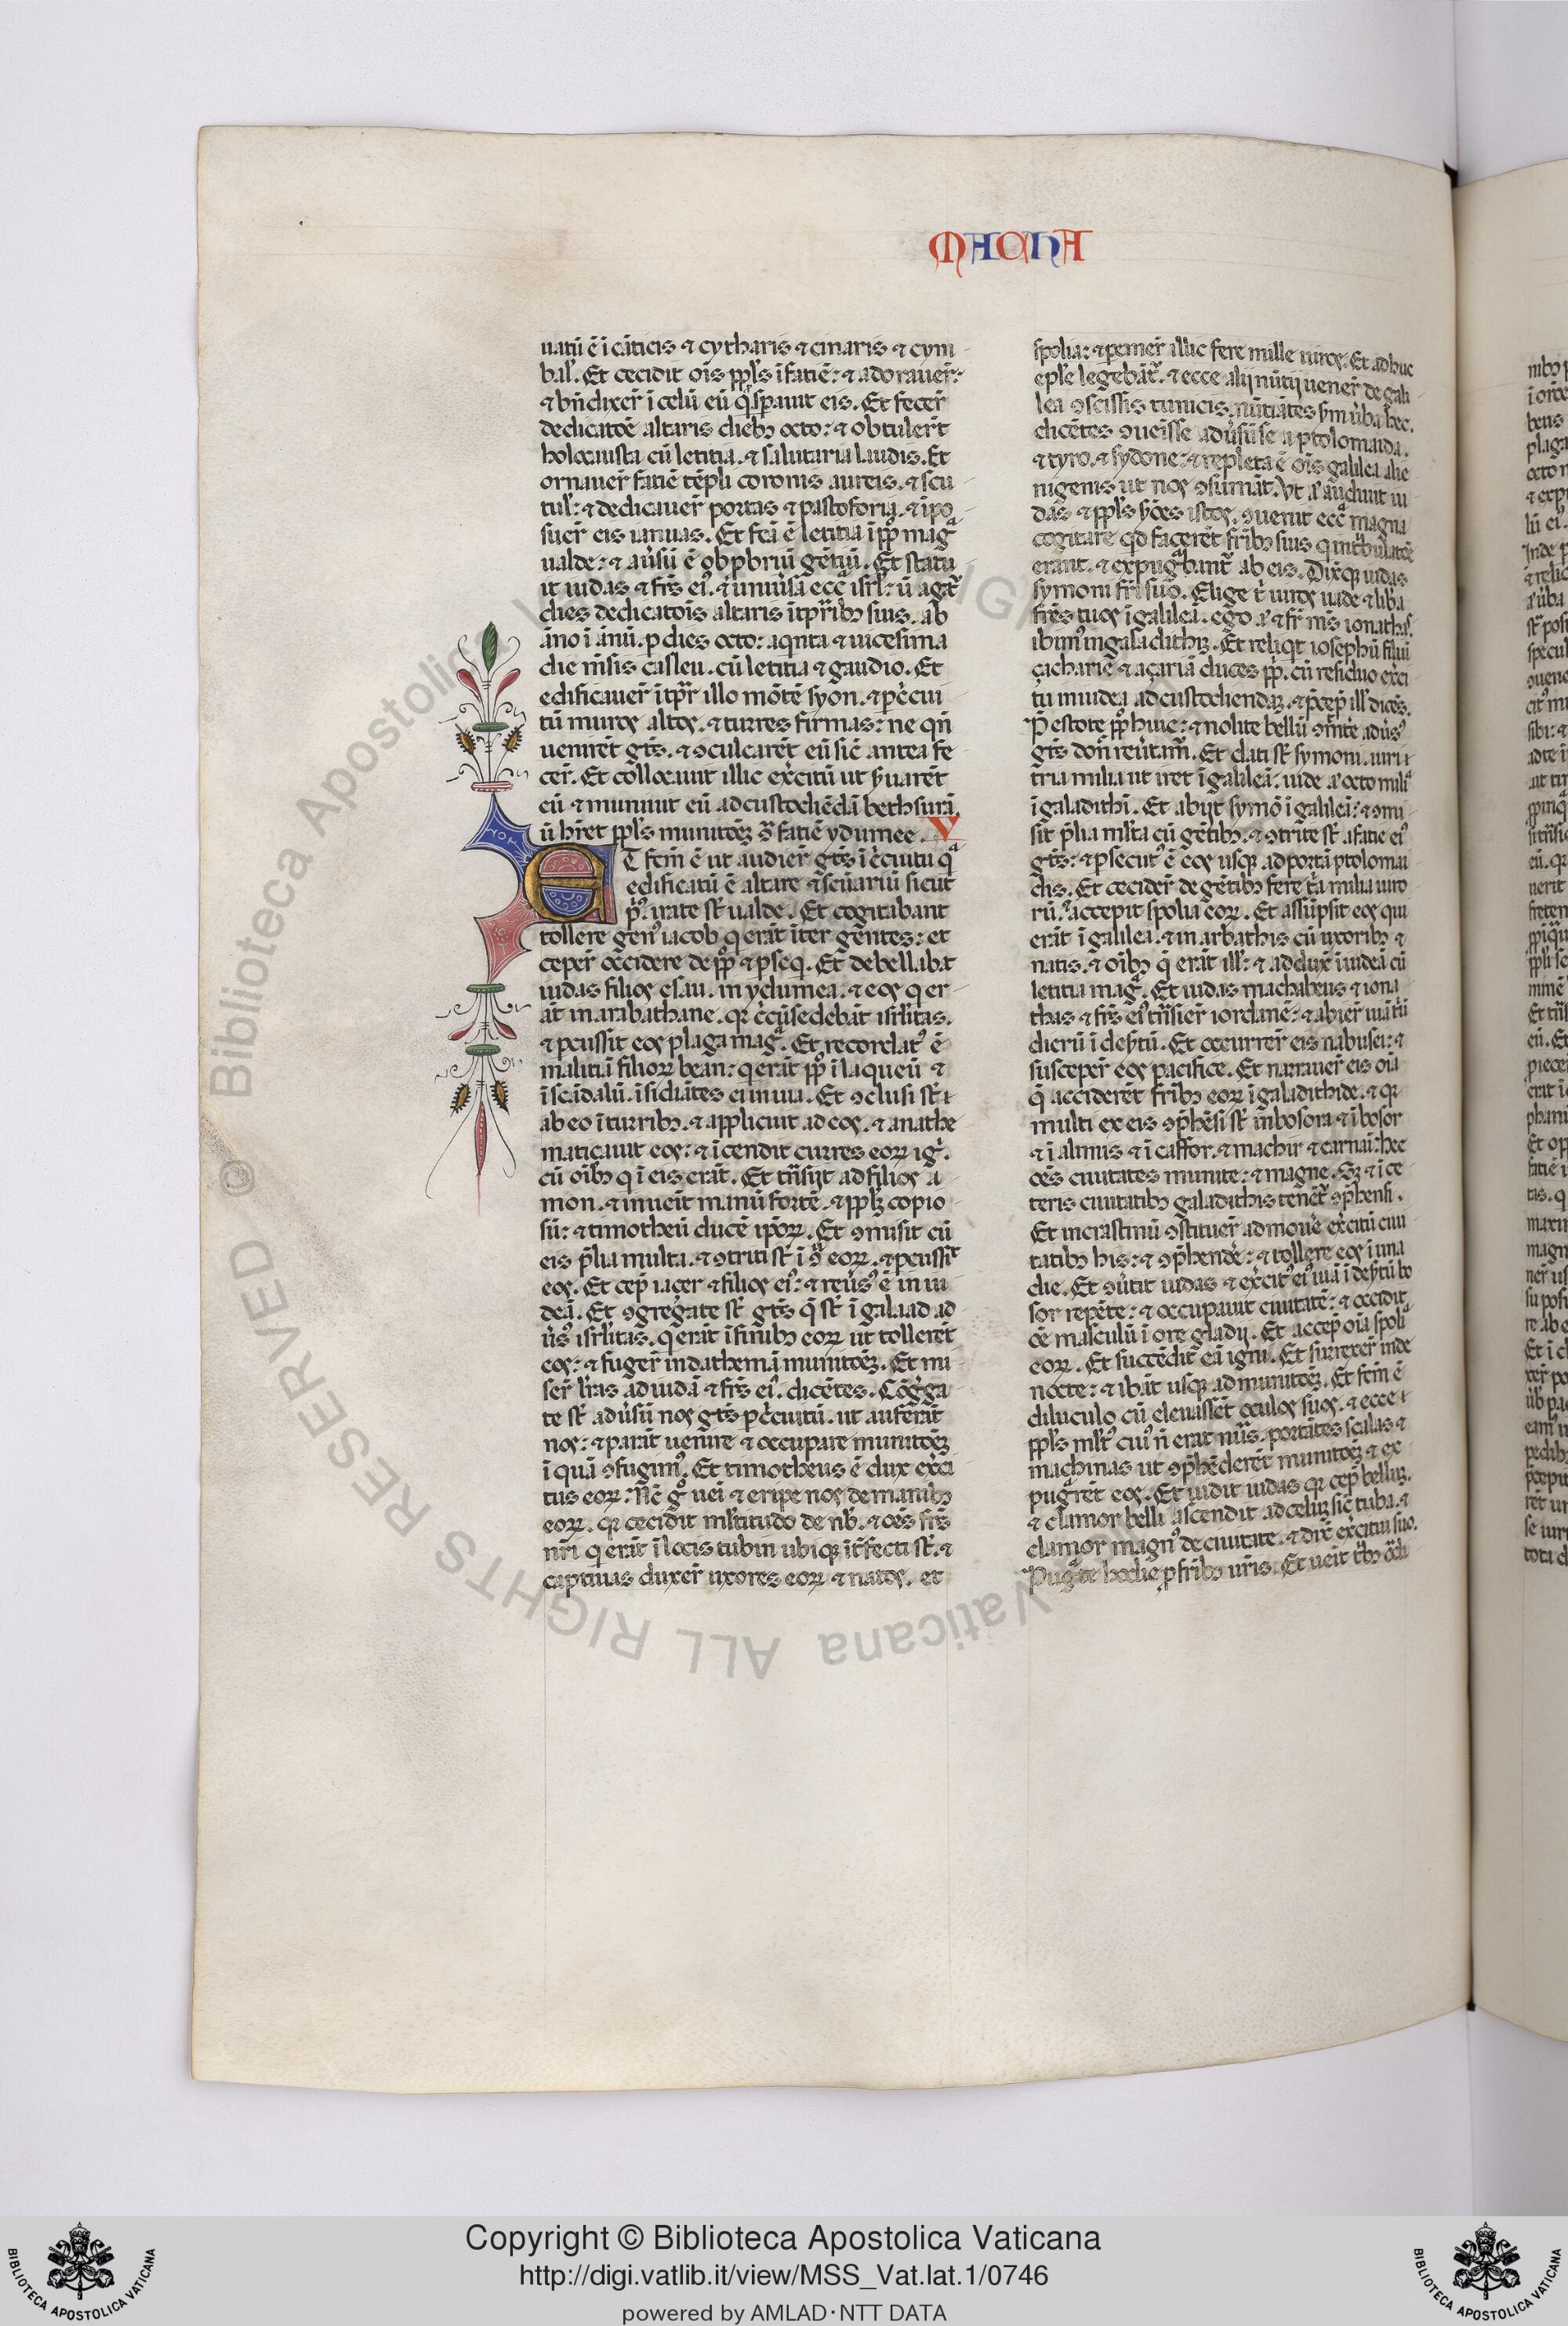 MACHA
uatū ē i cāticis ⁊ cytharis ⁊ cinaris ⁊ cym
bal'. Et cecidit oīs ppl's ī faciē: ⁊ adorauer̄:
⁊ bn̄dixer̄ ī celū eū q̄ sp̄auit eis. Et fecer̄
dedicatōē altaris dieb; octo: ⁊ obtuler̄t
holocausta cū letitia. ⁊ salutaria laudis. Et
ornauer̄ fatiē tēpli coronis aureis. ⁊ scu
tul': ⁊ dedicauer̄ portas ⁊ pastoforia. ⁊ īpo
suer̄ eis ianuas. Et fc̄a ē letitia ī pp̄lo mag̃
ualde: ⁊ au̇sū ē obp̄briū gētiū. Et statu
it iudas ⁊ fr̄s ei'. ⁊ uniu̇sa ecc̄ isrl': ū agat̄
dies dedicatōis altaris ī tp̄rib; suis. ab
āno ī anū. p dies octo: a qnta ⁊ uicesima
die m̄sis casleu. cū letitia ⁊ gaudio. Et
edificauer̄ ī tp̄r illo mōtē syon. ⁊ p c̄cui
tū muros altos. ⁊ turres firmas: ne qn̄
uenirēt gēs. ⁊ ꝯculcarēt eū sic̄ antea fe
cer̄. Et collocauit illic ex̄citū ut s̄uarēt
eū ⁊ muniuit eū ad custodiēdā bethsurā
ū hr̄et ppl's munitōēz ꝯ̄ fatiē ydumee. V
ET fcm̄ ē ut audier̄ gēs ī c̄cuitu q̄
edificatū ē altare ⁊ sc̄uariū sicut
p̄'. irate st̄ ualde. Et cogitabant
tollere gen' iacob q erāt īter gentes: et
ceper̄ occidere de pp̄lo ⁊ pseq. Et debellabat
iudas filios esau. in ydumea. ⁊ eos q er
āt in arabathane. qr c̄cūsedebāt isrl'itas.
⁊ pcussit eos plaga mag̃. Et recordat' ē
malitiā filior̄ bean: q erāt pp̄lo ī laqueū ⁊
ī scādalū. īsidiātes ei in uia. Et ꝯclusi st̄
ab eo ī turrib;. ⁊ applicuit ad eos. ⁊ anathe
maticauit eos: ⁊ īcendit turres eor̄ ig.
cū oīb; q ī eis erāt. Et trāsijt ad filios a
mon. ⁊ inueīt manū fortē. ⁊ ppl'z copio
sū: ⁊ timotheū ducē ip̄or̄. Et ꝯmisit cū
eis p̄lia multa. ⁊ ꝯtriti st̄ ī ꝯ̄ eor̄. ⁊ pcussit
eos. Et cep̄ iacer ⁊ filios ei': ⁊ reu̇s' ē in iu
deā. Et ꝯgregate st̄ gēs q̄ st̄ ī galaad ad
u̇s' isrl'itas. q erāt ī finib; eor̄ ut tollerēt
eos: ⁊ fuger̄ in dathemā munitōēz. Et mi
ser̄ lr̄as ad iudā ⁊ fr̄s ei'. dicētes. Cōg̃ga
te st̄ adu̇sū nos gēs p c̄cuitū. ut auferāt
nos: ⁊ parāt uenire ⁊ occupare munitōēz
ī quā ꝯfugim'. Et timotheus ē dux ex̄ci
tus eor̄. Nc̄ g° ueī ⁊ eripe nos de manib;
eor̄. qr cecidit ml'titudo de nb̄. ⁊ oēs fr̄s
nr̄i q erāt ī locis tubin ubiq; īt̄fecti st̄. ⁊
captiuas duxer̄ uxores eor̄ ⁊ natos. et
spolia: ⁊ pemer̄ illic fere mille uiros. Et adhuc
eple legebāt̄. ⁊ ecce alij nūtij uener̄ de gali
lea ꝯscissis tunicis. nūtiātes s̄m u̇ba hec.
dicētes ꝯueisse adu̇sū se a ptolomaida.
⁊ tyro. ⁊ sydone: ⁊ repleta ē oīs galilea alie
nigenis ut nos ꝯsumāt. Vt a' audiuit iu
das ⁊ ppl's s̄o̅es istos. ꝯuenit ecc̄ magna
cogitare qd facerēt frib; suis q ī tribulatōē
erant. ⁊ expug̃bant̄ ab eis. Dixitq; iudas
symoni fr̄i suo. Elige t̄ uiros uade ⁊ lib̄a
fr̄es tuos ī galileā. ego a' ⁊ fr̄ m̄s ionathas
ibim' in galadithiz. Et reliqt iosephū filiū
çacharie ⁊ açariā duces pp̄li. cū residuo ex̄ci
tu in iudea ad custodiendaz. ⁊ p̄cep̄ ill' dicēs.
P̄estote pp̄lo huic: ⁊ nolite bellū ꝯm̄ite̅ adu̇s'
gēs don̄ reu̇tam̄. Et dati st̄ symoni. uiri
tria milia ut iret ī galileā: iude a' octo mili
ī galadithī. Et abijt symō ī galileā: ⁊ ꝯmi
sit p̄lia ml'ta cū gētib;. ⁊ ꝯtrite st̄ a fatie ei'
gēs: ⁊ psecut' ē eos usq; ad portā ptolomai
dis. Et cecider̄ de gētib; fere t̄a milia uiro
rū. ⁊ accepit spolia eor̄. Et assūpsit eos qui
erāt ī galilea. ⁊ in arbathis cū uxorib; ⁊
natis. ⁊ oīb; q̄ erāt ill': ⁊ adduxē ī iudeā cū
letitia mag̃. Et iudas machabeus ⁊ iona
thas ⁊ fr̄s ei' trāsier̄ iordanē: ⁊ abier̄ uiā triū
dierū ī des̄tū. Et occurrer̄ eis nabutei: ⁊
susceper̄ eos pacifice. Et narrauer̄ eis oīa
q̄ acciderēt frib; eor̄ ī galadithide. ⁊ qr
multi ex eis ꝯp̄hēsi st̄ in bosora ⁊ ī bosor
⁊ ī alimis ⁊ ī caffor. ⁊ machir ⁊ carnaī: hec
oēs ciuitates munite: ⁊ magne. Sz ⁊ ī ce
teris ciuitatib; galadithis tenēt̄ ꝯp̄hensi.
Et in crastinū ꝯstituer̄ admoue̅ ex̄citū ciui
tatib; his: ⁊ ꝯp̄hende̅: ⁊ tollere eos ī una
die. Et ꝯu̇tit iudas ⁊ ex̄cit' ei' uiā ī des̄tū bo
sor repēte: ⁊ occupauit ciuitatē: ⁊ occidit
oē masculū ī ore gladij. Et accep̄ oīa spolia
eor̄. Et succēdit eā igni. Et surrexer̄ inde
nocte: ⁊ ibāt usq; ad munitōēz. Et fcm̄ ē
diluculo cū eleuassēt oculos suos. ⁊ ecce
ppl's ml't' cui' n̄ erat nūs. portātes scalas ⁊
machinas ut ꝯp̄hēderēt munitōēz ⁊ ex
pug̃rēt eos. Et uidit iudas qr cep̄ bellūz.
⁊ clamor belli ascendit ad celūz sic̄ tuba. ⁊
clamor magn' de ciuitate. ⁊ dix̄ ex̄citui suo.
Pug̃te hodie p frib; ur̄is. Et ueīt
Copyright © Biblioteca Apostolica Vaticana
http://digi.vatlib.it/view/MSS_Vat.lat.1/0746
powered by AMLAD·NTT DATA
BIBLIOTECA APOSTOLICA VATICANA
BIBLIOTECA APOSTOLICA VATICANA
© Biblioteca Apostolica Vaticana ALL RIGHTS RESERVED